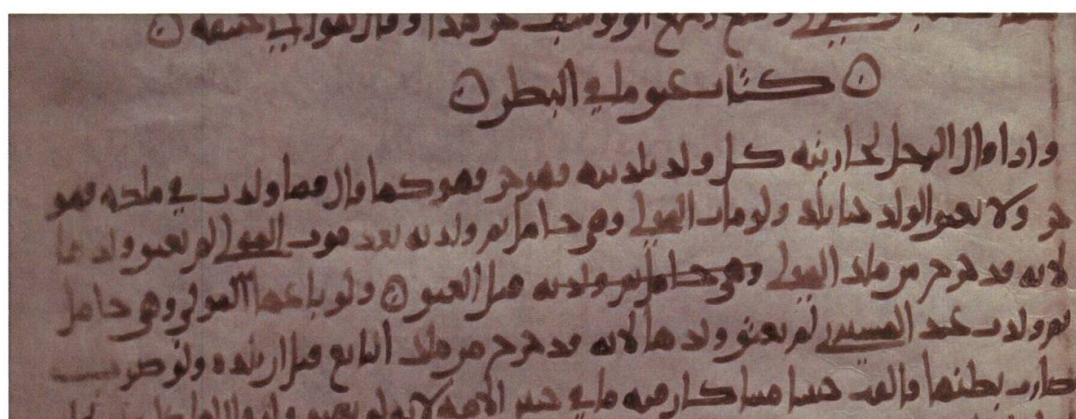 او يوسف هو هذا وقال هو ابي حنيفه
كتاب عتق ما في البطن
واذا قال الرجل لجاريته كل ولد تلدينه فهو حر فهو كما قال فما ولدت في ملكه فهو
حر ولا يعتق الولد حتا تلد ولو مات المولى وهي حامل ثم ولدته بعد موت المولى لم يعتق ولدها
لانه قد خرج من ملك المولى وهي حامل ثم ولدته قبل العتق ولو باعها المولى وهي حامل
ثم ولدت عند المشتري لم يعتق ولدها لانه قد خرج من ملك البايع قبل ان تلده ولو ضرب
ضارب بطنها فالقت جنينا ميتا كان فيه ما في جنين الامه لانه لم يعتق